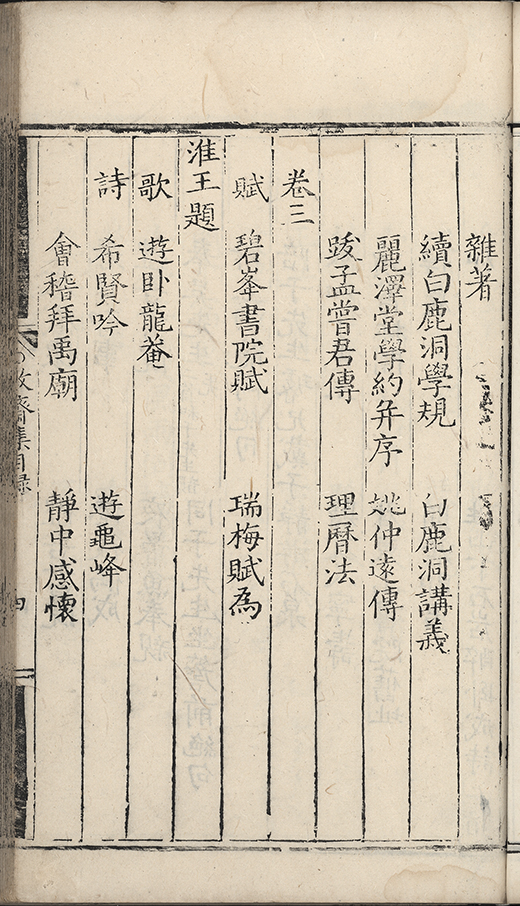 雜著
續白鹿洞學規 白鹿洞講義
麗澤堂學約并序 姚仲遠傳
跋孟嘗君傳 理曆法
卷三
賦 碧峯書院賦 瑞梅賦為
淮王題
歌 遊卧龍菴
詩 希賢吟 遊龜峰
會稽拜禹廟 靜中感懷
敬齋集目録 四